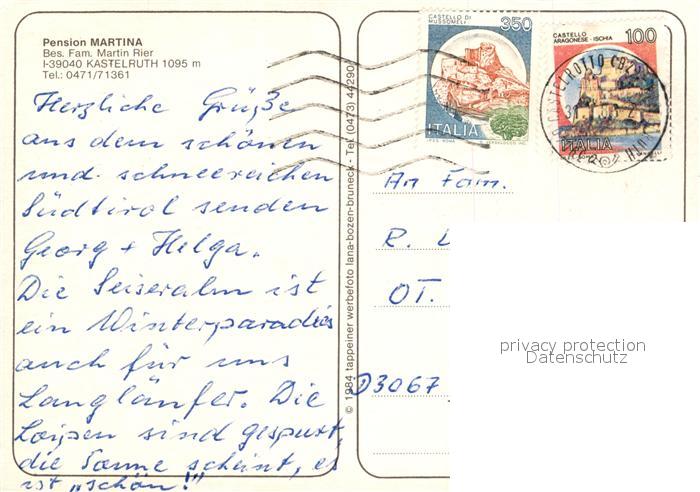 Pension MARTINA
Bes. Fam. Martin Rier
I-39040 KASTELRUTH 1095 m
Tel.: 0471/71361
Herzliche Grüße
aus dem schönen
und schneereichen
Südtirol senden
Georg + Helga.
Die Seiseralm ist
ein Winterparadies
auch für uns
Langläufer. Die
Loipen sind gespurt,
die Sonne scheint, es
ist „schön!"
© 1984 tappeiner werbefoto lana-bozen-bruneck - Tel. (0473) 44290
CASTELLO DI
MUSSOMELI
350
ITALIA
CASTELLO
ARAGONESE - ISCHIA
100
ITALIA
An Fam.
R. L
OT.
D3067
privacy protection
Datenschutz